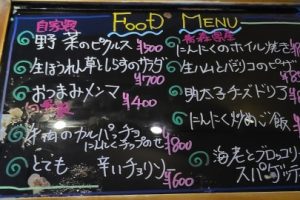 FOOD MENU
自家製
野菜のピクルス ¥500
生ほうれん草としらすのサラダ ¥700
おつまみメンマ ¥400
のカルパッチョ
にんにくチップのせ ¥800
とても辛いチョリソ ¥600
青森県産
にんにくのホイル焼き
生ハムとバジリコのピザ
明太子チーズドリア
にんにく炒めご飯
海老とブロッコリー
スパゲッティ